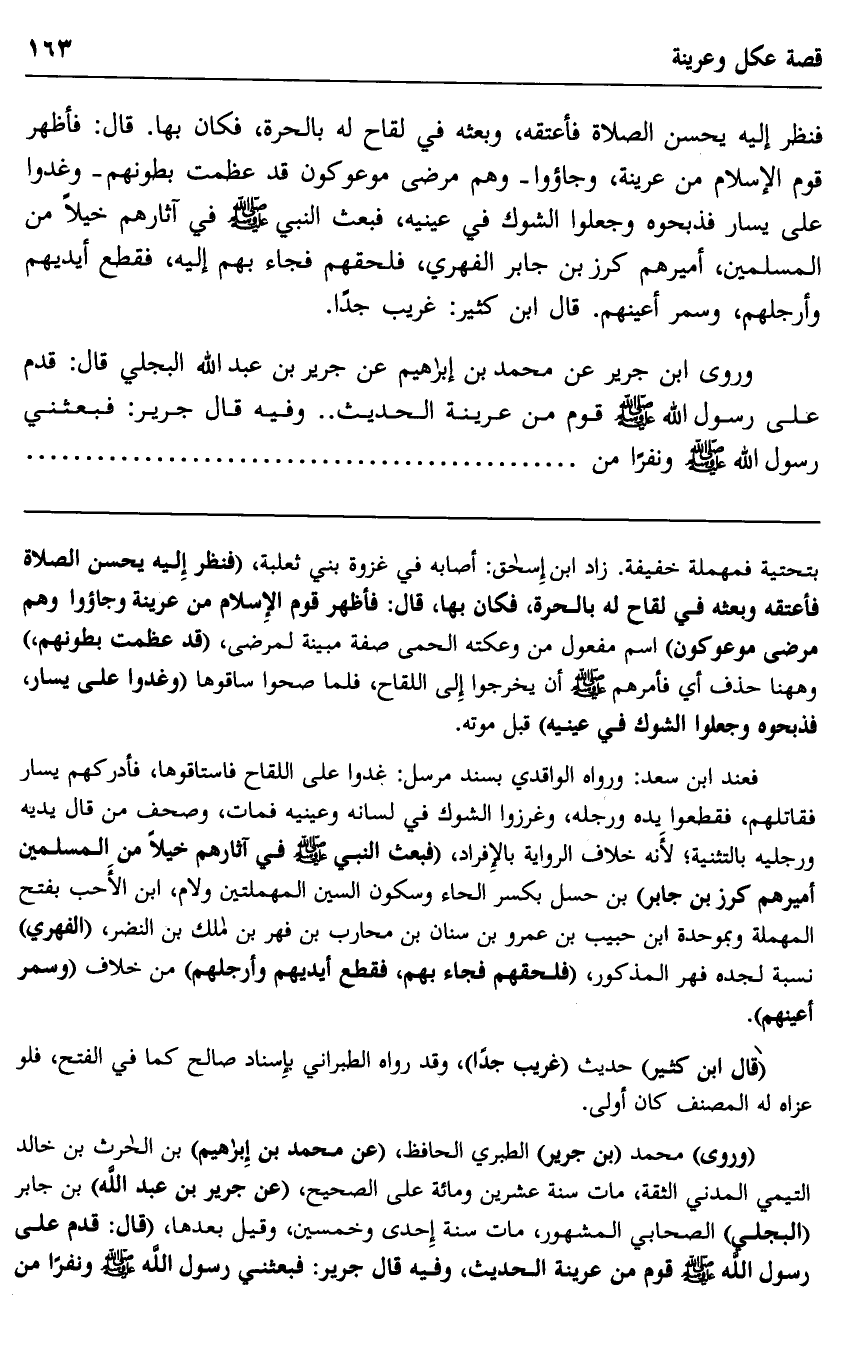 قصة عكل وعرينة ١٦٣
فنظر إليه يحسن الصلاة فأعتقه، وبعثه في لقاح له بالحرة، فكان بها. قال: فأظهر
قوم الإسلام من عرينة، وجاؤوا ـ وهم مرضى موعوكون قد عظمت بطونهم ـ وغدوا
على يسار فذبحوه وجعلوا الشوك في عينيه، فبعث النبي ﷺ في آثارهم خيلاً من
المسلمين، أميرهم كرز بن جابر الفهري، فلحقهم فجاء بهم إليه، فقطع أيديهم
وأرجلهم، وسمر أعينهم. قال ابن كثير: غريب جدًا.
وروى ابن جرير عن محمد بن إبرٰهيم عن جرير بن عبد الله البجلي قال: قدم
على رسول الله ﷺ قوم من عرينة الحديث.. وفيه قال جرير: فبعثني
رسول الله ﷺ ونفرًا من ..............................................
بتحتية فمهملة خفيفة. زاد ابن إسحٰق: أصابه في غزوة بني ثعلبة، (فنظر إليه يحسن الصلاة
فأعتقه وبعثه في لقاح له بالحرة، فكان بها، قال: فأظهر قوم الإسلام من عرينة وجاؤوا وهم
مرضى موعوكون) اسم مفعول من وعكته الحمى صفة مبينة لمرضى، (قد عظمت بطونهم،)
وههنا حذف أي فأمرهم ﷺ أن يخرجوا إلى اللقاح، فلما صحوا ساقوها (وغدوا على يسار،
فذبحوه وجعلوا الشوك في عينيه) قبل موته.
فعند ابن سعد: ورواه الواقدي بسند مرسل: غدوا على اللقاح فاستاقوها، فأدركهم يسار
فقاتلهم، فقطعوا يده ورجله، وغرزوا الشوك في لسانه وعينيه فمات، وصحف من قال يديه
ورجليه بالتثنية؛ لأنه خلاف الرواية بالإفراد، (فبعث النبي ﷺ في آثارهم خيلاً من المسلمين
أميرهم كرز بن جابر) بن حسل بكسر الحاء وسكون السين المهملتين ولام، ابن الأحب بفتح
المهملة وبموحدة ابن حبيب بن عمرو بن سنان بن محارب بن فهر بن مٰلك بن النضر، (الفهري)
نسبة لجده فهر المذكور، (فلحقهم فجاء بهم، فقطع أيديهم وأرجلهم) من خلاف (وسمر
أعينهم).
(قال ابن كثير) حديث (غريب جدًا)، وقد رواه الطبراني بإسناد صالح كما في الفتح، فلو
عزاه له المصنف كان أولى.
(وروى) محمد (بن جرير) الطبري الحافظ، (عن محمد بن إبرٰهيم) بن الحٰرث بن خالد
التيمي المدني الثقة، مات سنة عشرين ومائة على الصحيح، (عن جرير بن عبد الله) بن جابر
(البجلي) الصحابي المشهور، مات سنة إحدى وخمسين، وقيل بعدها، (قال: قدم على
رسول الله ﷺ قوم من عرينة الحديث، وفيه قال جرير: فبعثني رسول الله ﷺ ونفرًا من